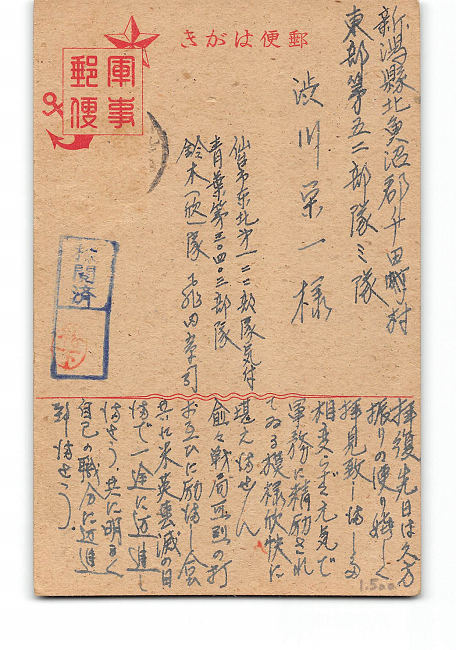 郵便はがき
軍事
郵便
新潟縣北魚沼郡
東部第五二部隊ミ隊
渋川栄一様
仙台东北第一二二部隊気付
青葉第三〇四〇三部隊
鈴木(欣)隊
検閲済
拝復先日は久方
振りの便り嬉しく
拝見致しました
相変らず元気で
軍務に精励され
てゐる模様欣快に
堪えません
愈々戦局の打
お互ひに励まし合
共に米英撃滅の日
まで一途に邁進し
ませう、共に明るく
自己の職分に邁進
致しませう。
1.500